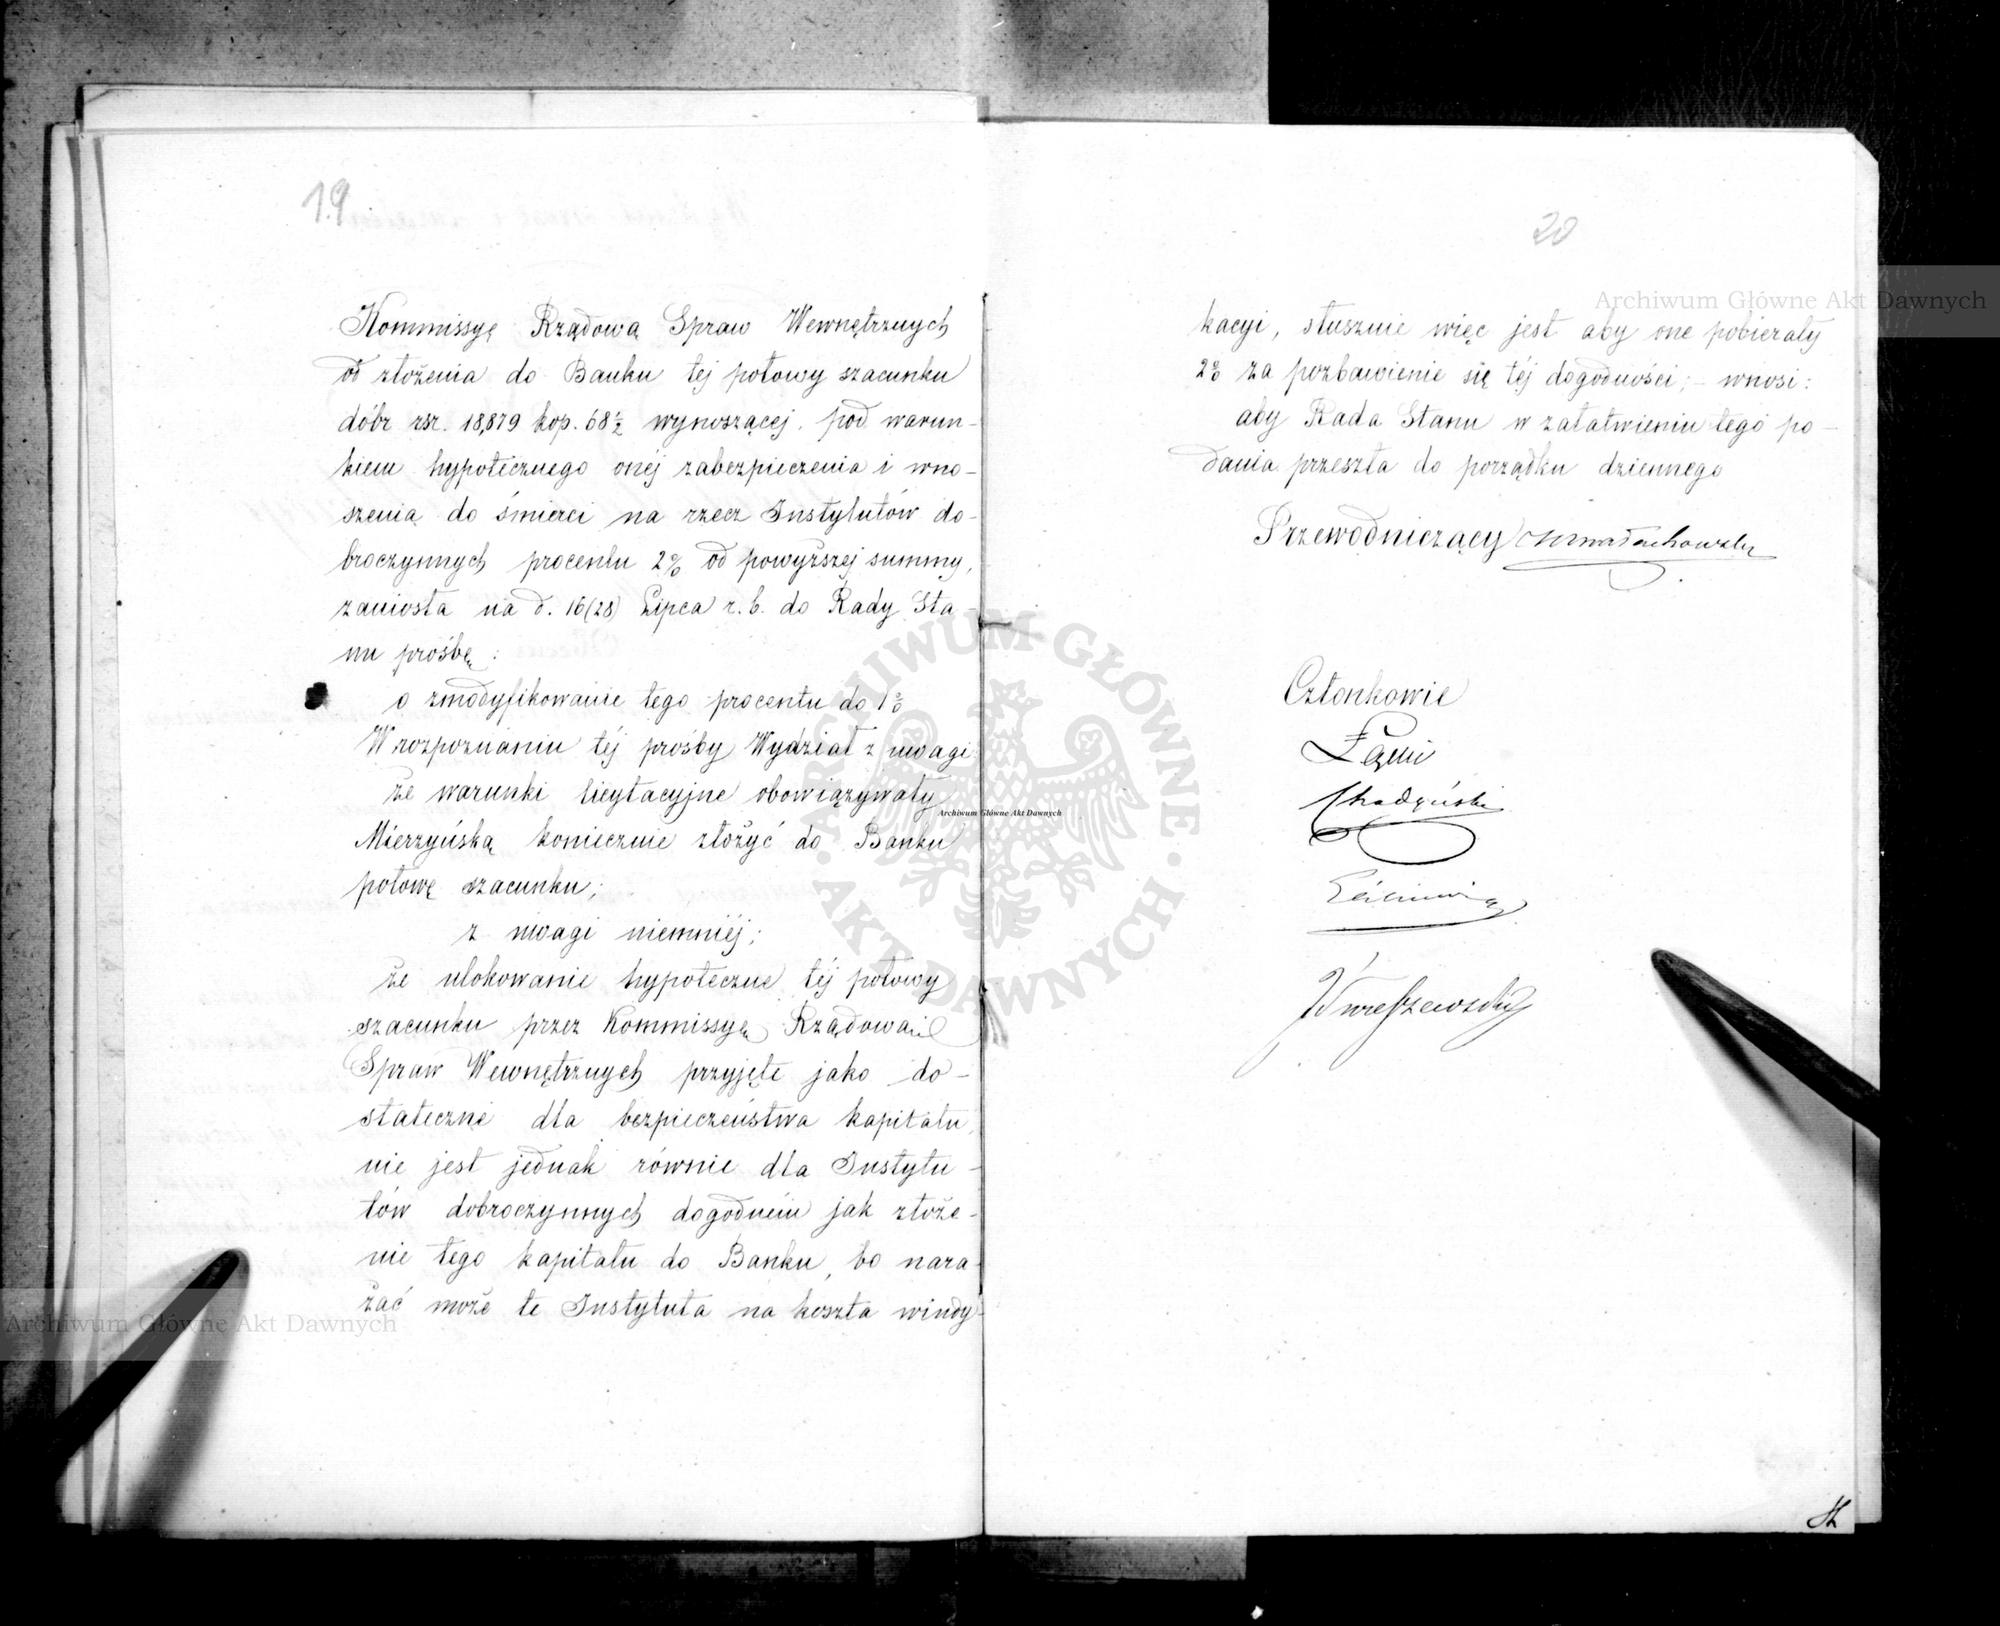 19
Kommissyę Rządową Spraw Wewnętrznych
od złożenia do Banku tej połowy szacunku
dóbr rsr. 18,879 kop. 68½ wynoszącej, pod warun-
kiem hypotecznego onéj zabezpieczenia i wno-
szenia do śmierci na rzecz Instytutów do-
broczynnych procentu 2% od powyższej summy,
zaniosła na d. 16(28) Lipca r. b. do Rady Sta-
nu prośbę:
o zmodyfikowanie tego procentu do 1%
W rozpoznaniu téj prośby Wydział z uwagi
że warunki licytacyjne obowiązywały
Mierzyńską koniecznie złożyć do Banku
połowę szacunku;
z uwagi niemniéj;
że ulokowanie hypoteczne téj połowy
szacunku przez Kommissyę Rządową
Spraw Wewnętrznych przyjęte jako do-
stateczne dla bezpieczeństwa kapitału,
nie jest jednak równie dla Instytu-
tów dobroczynnych dogodném jak złoże-
nie tego kapitału do Banku, bo nara-
żać może te Instytuta na koszta windy-
20
kacyi, słusznie więc jest aby one pobierały
2% za pozbawienie się téj dogodności; – wnosi:
aby Rada Stanu w załatwieniu tego po-
dania przeszła do porządku dziennego
Przewodniczący Małachowski
Członkowie
Łęski
Chądzyński
Archiwum Główne Akt Dawnych
Archiwum Główne Akt Dawnych
Archiwum Główne Akt Dawnych
ARCHIWUM GŁÓWNE
AKT DAWNYCH